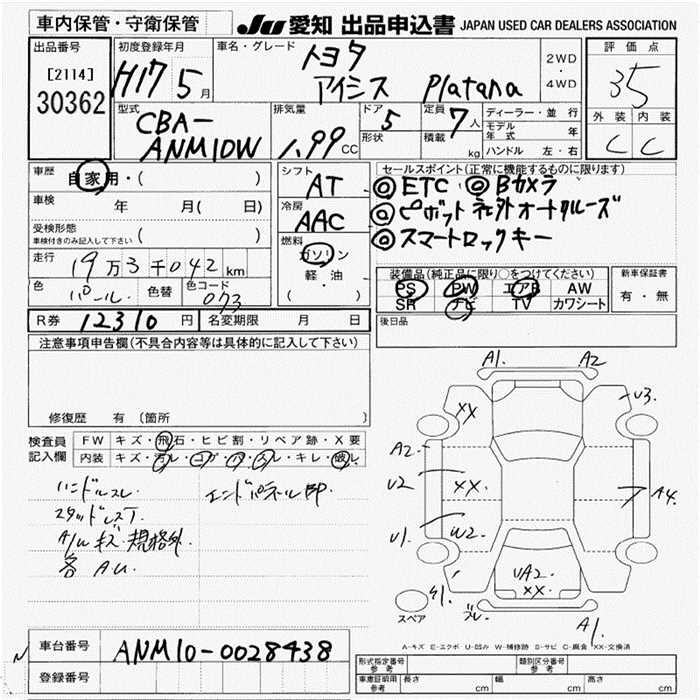 車内保管・守衛保管
JU 愛知 出品申込書 JAPAN USED CAR DEALERS ASSOCIATION
出品番号
[2114]
30362
初度登録年月
H17 5月
車名・グレード
トヨタ
アイシス Platana
2WD
・
4WD
評価点
35
外装 内装
C C
型式
CBA-
ANM10W
排気量
1.99 CC
ドア 5
形状
定員 7人
積載 kg
ディーラー・並行
モデル年式 年
ハンドル 左・右
車歴 自家用・( )
車検 年 月( 日)
受検形態
車検付きのみ記入して下さい ( )
走行 19万3千042km
色 パール 色替 色コード 073
R券 12310円 名変期限 月 日
シフト
AT
冷房
AAC
燃料
ガソリン
軽・油
・( )
セールスポイント(正常に機能するものに限ります)
◎ETC ◎Bカメラ
◎ピボット社外オートクルーズ
◎スマートロックキー
装備品(純正品に限り○をつけてください)
PS PW エアB AW
SR ナビ TV カワシート
新車保証書
有・無
後日品
注意事項申告欄(不具合内容等は具体的に記入して下さい)
修復歴 有(箇所
検査員
記入欄
FW キズ・飛石・ヒビ割・リペア跡・X要
内装 キズ・汚レ・コゲ・穴・スレ・キレ・破レ
ハンドルスレ エンドパネル凹
スタッドレスT
A/Wキズ・規格外
各AU
A1. A2
XX U3.
A2.
U2 XX. A4.
U1. W2
UA2.
XX.
スペア
A1.
A-キズ E-エクボ U-凹み W-補修跡 S-サビ C-腐食 XX-交換済
車台番号 ANM10-0028438
登録番号
形式指定番号 参考
類別区分番号 参考
車庫証明用 参考 長さ cm 幅 cm 高さ cm